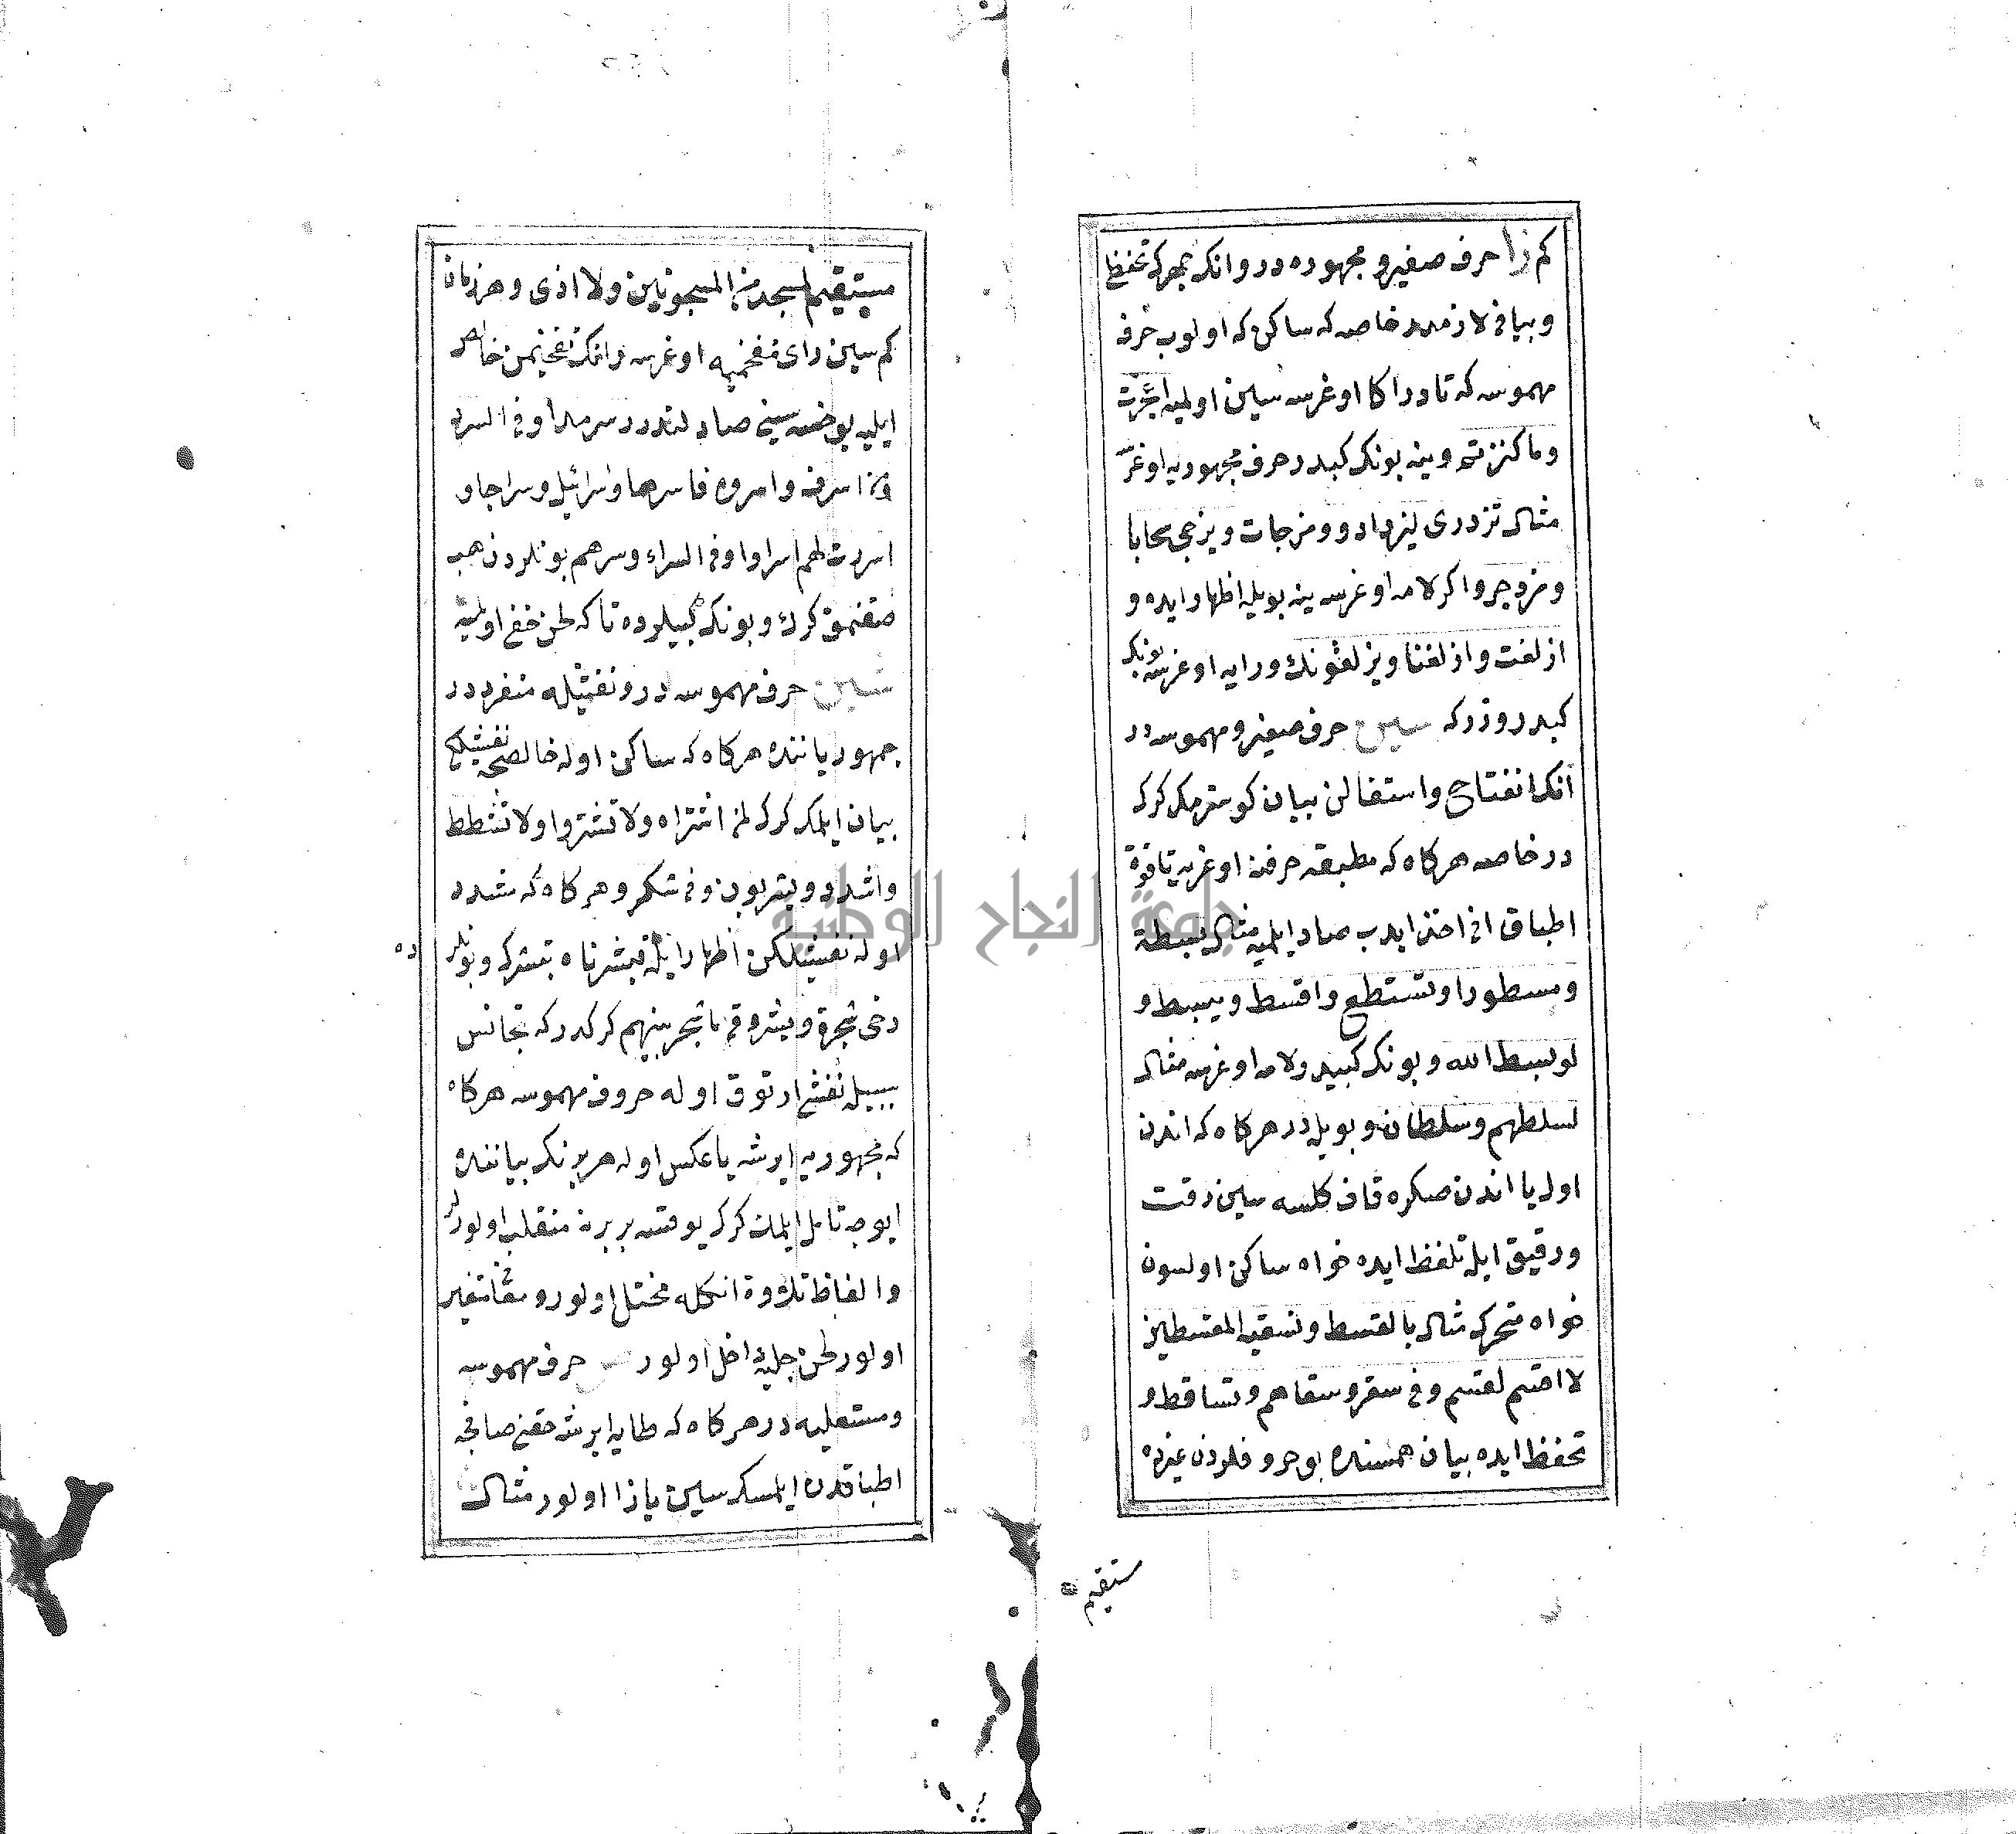 كم زا حرف صفير و مجهوره در وانك جهرك تحفظ
و بيانى لازمدر خاصه كه ساكن كه اولوب حرف
مهموسه كه تا در اكا اوغرسه سين اوليه اعجزت
وما كنزتم وينه بونك كبيدر حرف مجهوريه اوغرسه
مثال تزدرى ليزدادوا ومزجات ويزجى سحابا
ومزدجر واكر لامه اوغرسه ينه بويله اظهار ايده و
ازلفت وازلفنا ويزلقونك ورايه اوغرسه بونك
كبدر وزر كه سين حرف صفير و مهموسه در
انك انفتاح واستفالن بيان كوسترمك كرك
در خاصه هركاه كه مطبقه حرفن اوغريه تا قوة
اطباق انى اخذ ايدب صاد ايلميه مثال بسطة
ومسطورا وتستطع واقسط ويبسط و
لو بسط الله وبونك كبيدر لامه اوغرسه مثال
لسلطهم وسلطان وبويله در هركاه كه اندن
اول يا اندن صكره قاف كلسه سين رقت
ورقيق ايله تلفظ ايده خواه ساكن اولسون
خواه متحرك مثال بالقسط ونسقيه المقسطين
لا اقسم لقسم وفى سقر وسقاهم وتساقط و
تحفظ ايده بيان همسنده بو حروفلردن غيرده
ستقيم
مستقيم لمسجد من المسجونين ولا اذى وهر زمان
كم سين راى مفخميه اوغرسه رانك تفخيمن خاهر
ايليه بوخسه سينى صاد لتدرر سرمدا وفى السرد
اسرف وامروه فاسرها واسرائيل وسراجا و
اسررت لهم اسرارا وفى السراء وسرهم بونلردن هب
صقنمق كرك وبونك كبيلرده تا كه لحن خفى اولميه
شين حرف مهموسه در و تفشيله منفرد در
جمهور ياننده هركاه كه ساكن اوله خالصجه تفشيكى
بيان ايلمك كرك لمن اشتراه ولا تشتروا ولا تشطط
واشدد ويشربون وفى شكر وهركاه كه مشدد
اوله تفشيلكن اظهار ايله فبشرناه تبشرك وبونلر ده
دخى شجرة ويشروق ما شجر بينهم كركدر كه تجانس
سببيله تفشى ارتوق اوله حروف مهموسه هركاه
كه مجهوريه ايرشه يا عكس اوله هر برنك بياننده
ايوجه تامل ايلمك كرك يوقسه بربرنه منقلب اولورلر
والفاظ تلاوة انكله مختل اولور ومعنا تغير
اولور لحن جليه داخل اولور ص حرف مهموسه
ومستعليه در هركاه كه طايه ايرشه حقنى صافجه
اطباقدن ايلمسك سين يا زا اولور مثال